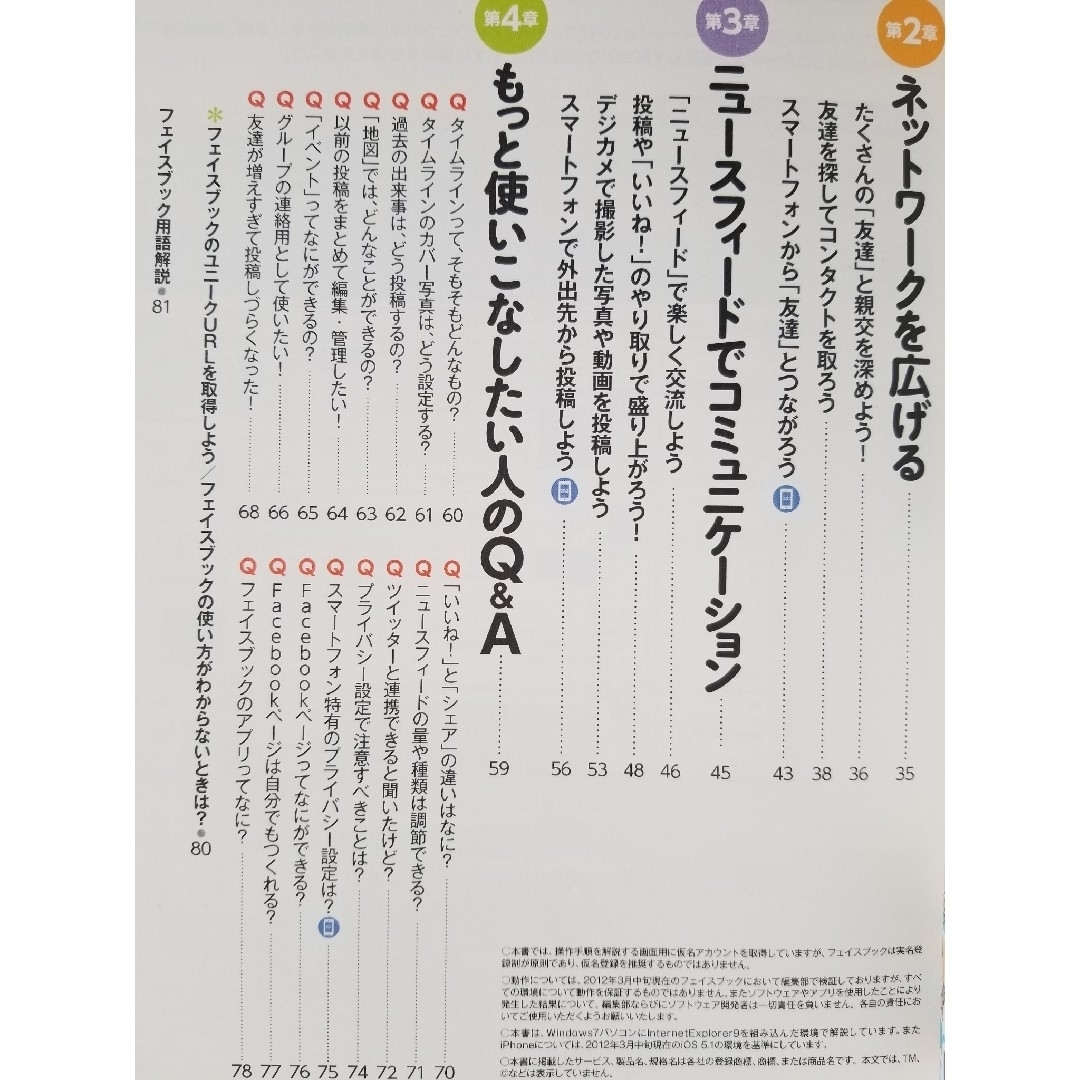 第2章
ネットワークを広げる 35
たくさんの「友達」と親交を深めよう! 36
友達を探してコンタクトを取ろう 38
スマートフォンから「友達」とつながろう 43
第3章
ニュースフィードでコミュニケーション 45
「ニュースフィード」で楽しく交流しよう 46
投稿や「いいね!」のやり取りで盛り上がろう! 48
デジカメで撮影した写真や動画を投稿しよう 53
スマートフォンで外出先から投稿しよう 56
第4章
もっと使いこなしたい人のQ&A 59
Q タイムラインって、そもそもどんなもの? 60
Q タイムラインのカバー写真は、どう設定する? 61
Q 過去の出来事は、どう投稿するの? 62
Q 「地図」では、どんなことができるの? 63
Q 以前の投稿をまとめて編集・管理したい! 64
Q 「イベント」ってなにができるの? 65
Q グループの連絡用として使いたい! 66
Q 友達が増えすぎて投稿しづらくなった! 68
Q 「いいね!」と「シェア」の違いはなに? 70
Q ニュースフィードの量や種類は調節できる? 71
Q ツイッターと連携できると聞いたけど? 72
Q プライバシー設定で注意すべきことは? 74
Q スマートフォン特有のプライバシー設定は? 75
Q Facebookページってなにができる? 76
Q Facebookページは自分でもつくれる? 77
Q フェイスブックのアプリってなに? 78
＊フェイスブックのユニークURLを取得しよう/フェイスブックの使い方がわからないときは?●80
フェイスブック用語解説●81
○本書では、操作手順を解説する画面用に仮名アカウントを取得していますが、フェイスブックは実名登
録制が原則であり、仮名登録を推奨するものではありません。
○動作については、2012年3月中旬現在のフェイスブックにおいて編集部で検証しておりますが、すべ
ての環境について動作を保証するものではありません。またソフトウェアやアプリを使用したことにより
発生した結果について、編集部ならびにソフトウェア開発者は一切責任を負いません。各自の責任にお
いてご使用くださいますようお願いいたします。
○本書は、Windows7パソコンにInternetExplorer9を組み込んだ環境で解説しています。また
iPhoneについては、2012年3月中旬現在のiOS 5.1の環境を基準にしています。
○本書に掲載したサービス、製品名、規格名は各社の登録商標、商標、または商品名です。本文では、TM、
©などは表示していません。